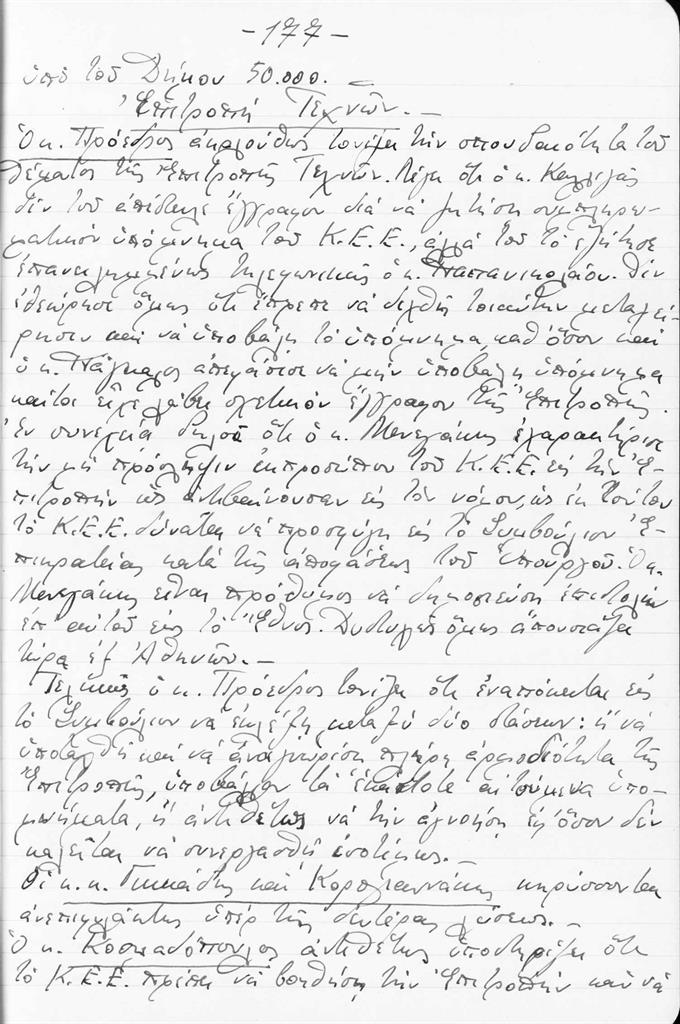 - 177 -
ὑπὸ τοῦ Δήμου 50.000. —
Ἐπιτροπὴ Τεχνῶν. —
Ὁ κ. Πρόεδρος ἀκολούθως τονίζει τὴν σπουδαιότητα τοῦ
θέματος τῆς Ἐπιτροπῆς Τεχνῶν. Λέγει ὅτι ὁ κ. Καλλιγᾶς
δὲν τοῦ ἀπέστειλε ἔγγραφον διὰ νὰ ζητήση συμπληρω-
ματικὸν ὑπόμνημα τοῦ Κ.Ε.Ε., ἀλλὰ τοῦ τὸ ἐζήτησε
ἐπανειλημμένως τηλεφωνικῶς ὁ κ. Παπανικολάου. Δὲν
ἐθεώρησε ὅμως ὅτι ἔπρεπε νὰ δεχθῆ τοιαύτην μεταχεί-
ρησιν καὶ νὰ ὑποβάλη τὸ ὑπόμνημα, καθ' ὅσον καὶ
ὁ κ. Πάγκαλος ἀπεφάσισε νὰ μὴν ὑποβάλη ὑπόμνημα
καίτοι εἶχε λάβει σχετικὸν ἔγγραφον τῆς Ἐπιτροπῆς.
Ἐν συνεχείᾳ δηλοῖ ὅτι ὁ κ. Μενελάκης ἐχαρακτήρισε
τὴν μὴ πρόσληψιν ἐκπροσώπου τοῦ Κ.Ε.Ε. εἰς τὴν Ἐ-
πιτροπὴν ὡς ἀντιβαίνουσαν εἰς τὸν νόμον, ὡς ἐκ τούτου
τὸ Κ.Ε.Ε. δύναται νὰ προσφύγη εἰς τὸ Συμβούλιον Ἐ-
πικρατείας κατὰ τῆς ἀποφάσεως τοῦ Ὑπουργοῦ. Ὁ κ.
Μενελάκης εἶναι πρόθυμος νὰ δημοσιεύση ἐπιστολὴν
ἐπ' αὐτοῦ εἰς τὸ Ἔθνος. Δυστυχῶς ὅμως ἀπουσιάζει
τώρα ἐξ Ἀθηνῶν. —
Τελικῶς ὁ κ. Πρόεδρος τονίζει ὅτι ἐναπόκειται εἰς
τὸ Συμβούλιον νὰ ἐκλέξη μεταξὺ δύο στάσεων: ἢ νὰ
ὑποταχθῆ καὶ νὰ ἀναγνωρίση πλήρη ἁρμοδιότητα τῆς
Ἐπιτροπῆς, ὑποβάλλον τὰ ἑκάστοτε αἰτούμενα ὑπο-
μνήματα, ἢ ἀντιθέτως νὰ τὴν ἀγνοήση ἐφ' ὅσον δὲν
καλεῖται νὰ συνεργασθῆ ἰσοτίμως. —
Οἱ κ.κ. Γιμιάδης καὶ Καρογιαννάκης κηρύσσονται
ἀνεπιφυλάκτως ὑπὲρ τῆς δευτέρας λύσεως. —
Ὁ κ. Κοσμαδόπουλος ἀντιθέτως ὑποστηρίζει ὅτι
τὸ Κ.Ε.Ε. πρέπει νὰ βοηθήση τὴν Ἐπιτροπὴν καὶ νὰ